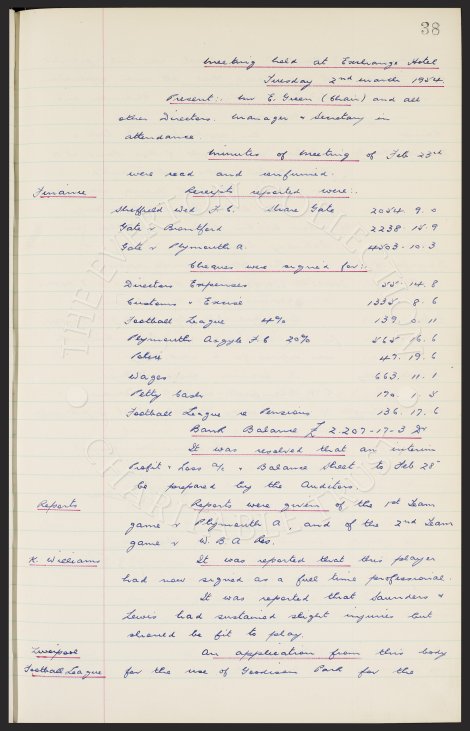 38
Meeting held at Exchange Hotel
Tuesday 2nd March 1954
Present:. Mr E. Green (Chair) and all
other Directors. Manager & Secretary in
attendance.
Minutes of Meeting of Feb 23rd
were read and confirmed.
Finance Receipts reported were:.
Sheffield Wed F.C. Share Gate 2054. 9. 0
Gate v Brentford 2238. 15. 9
Gate v Plymouth A. 4503. 10. 3
Cheques were signed for:.
Directors Expenses 55. 14. 8
Customs & Excise 1335. 8. 6
Football League 4% 139. 0. 11
Plymouth Argyle F.C 20% 565. 16. 6
Police 47. 19. 6
Wages 663. 11. 1
Petty Cash 170. 1. 5
Football League re Pensions 136. 17. 6
Bank Balance £ 2.207-17-3 Dr
It was resolved that an interim
Profit & Loss a/c & Balance Sheet to Feb 28
be prepared by the Auditors.
Reports Reports were given of the 1st Team
game v Plymouth A, and of the 2nd Team
game v W.B.A Res.
K. Williams It was reported that this player
had now signed as a full time professional.
It was reported that Saunders &
Lewis had sustained slight injuries but
should be fit to play.
Liverpool An application from this body
Football League for the use of Goodison Park for the
THE EVERTON COLLECTION
CHARITABLE TRUST